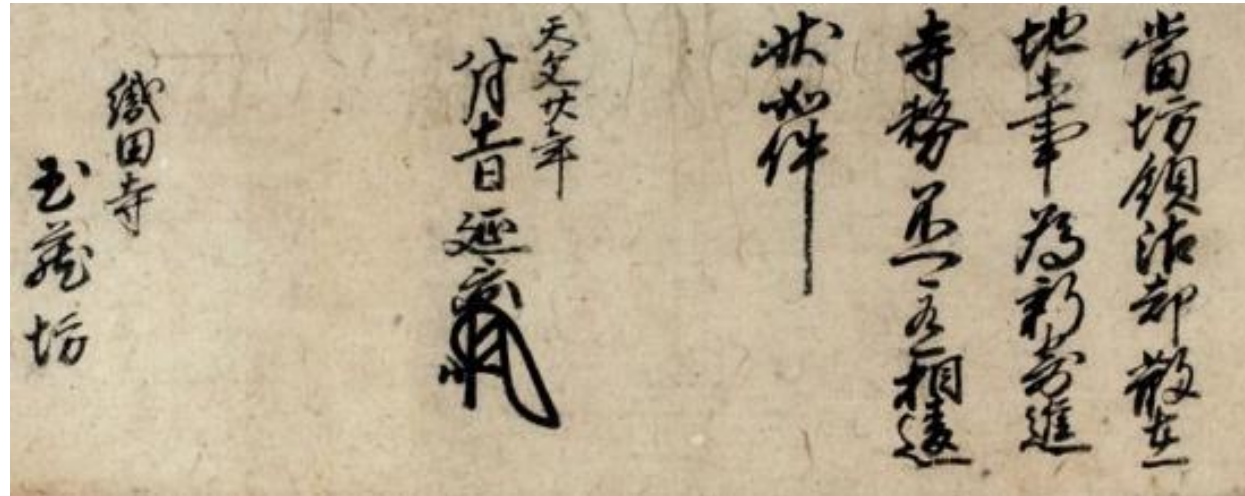 當坊領沽却散在
地等事為新寄進
寺務不可有相違
状如件
天文廿年
十一月廿日 延景
織田寺
玉蔵坊